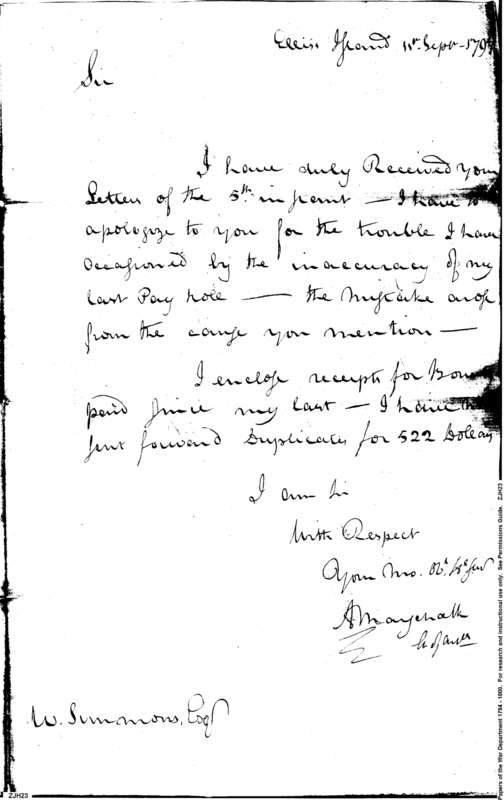 Ellis Island 11th Septr - 179
Sir
I have duly Received your
Letters of the 5th instant — I have to
apologize to you for the trouble I have
Occassioned by the inaccuracy of my
last Pay Role — the Mistake arose
from the cause you mention —
I enclose receipts for Bounty
paid since my last — I have
sent forward Duplicates for 522 Dollars
I am Sir
With Respect
Your Mo. Obt. Hle Servt
A Marschalk
W. Simmons, Esqr
ZJH23
Papers of the War Department 1784 - 1800. For research and instructional use only. See Permissions Guide. ZJH23